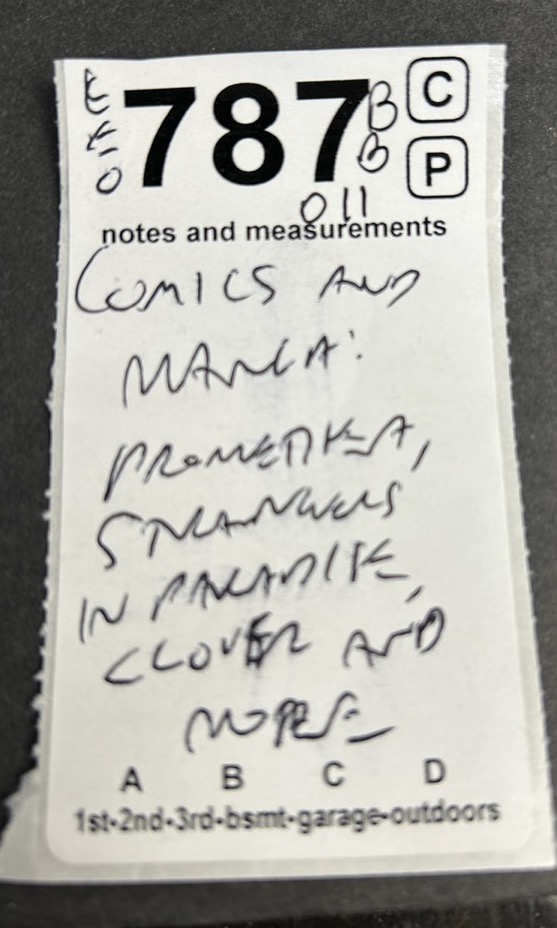 787 C
P
B
B
011
notes and measurements
COMICS AND
MANGA:
PROMETHEA,
STRANGERS
IN PARADISE,
CLOVER AND
MORE
A B C D
1st-2nd-3rd-bsmt-garage-outdoors